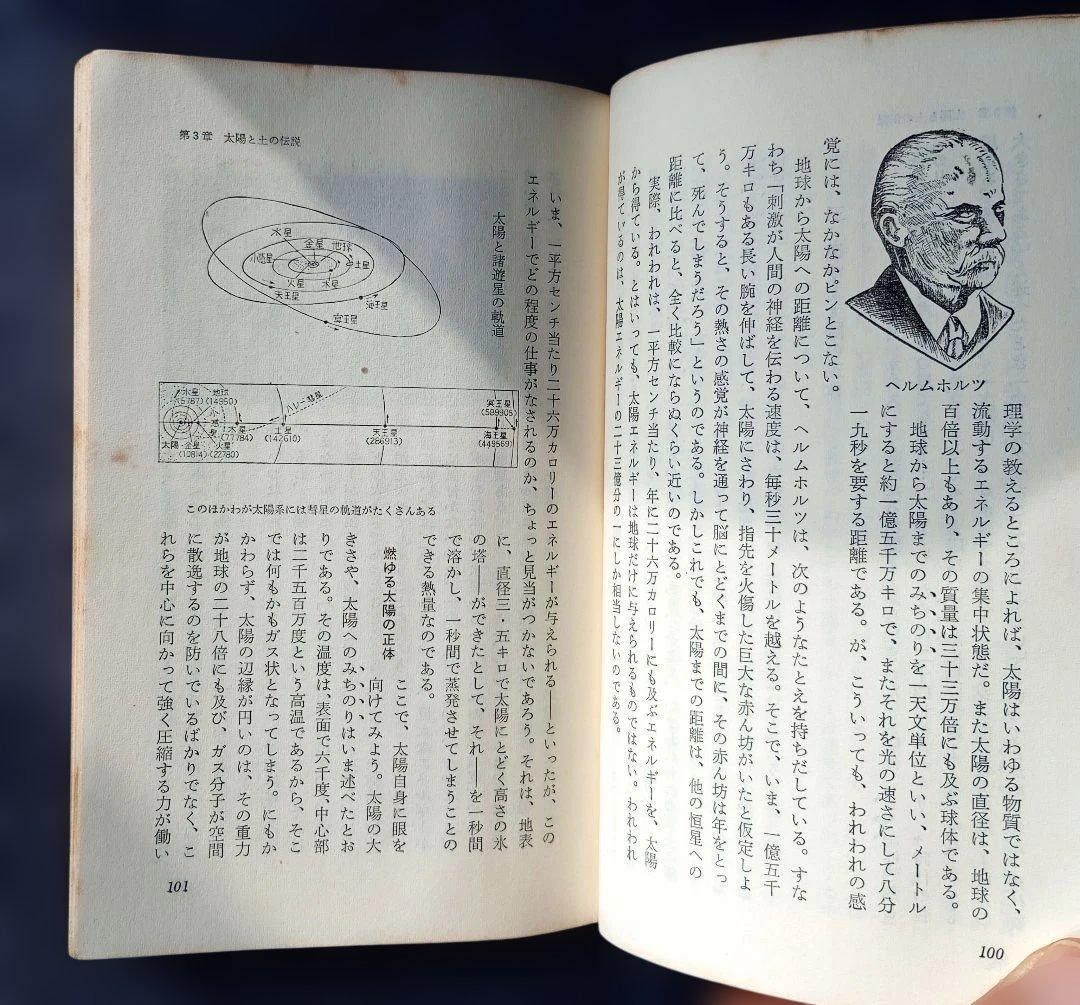 ヘルムホルツ
理学の教えるところによれば、太陽はいわゆる物質ではなく、
流動するエネルギーの集中状態だ。また太陽の直径は、地球の
百倍以上もあり、その質量は三十三万倍にも及ぶ球体である。
地球から太陽までのみちのりを一天文単位といい、メートル
にすると約一億五千万キロで、またそれを光の速さにして八分
一九秒を要する距離である。が、こういっても、われわれの感
覚には、なかなかピンとこない。
地球から太陽への距離について、ヘルムホルツは、次のようなたとえを持ちだしている。すな
わち「刺激が人間の神経を伝わる速度は、毎秒三十メートルを越える。そこで、いま、一億五千
万キロもある長い腕を伸ばして、太陽にさわり、指先を火傷した巨大な赤ん坊がいたと仮定しよ
う。そうすると、その熱さの感覚が神経を通って脳にとどくまでの間に、その赤ん坊は年をとっ
て、死んでしまうだろう」というのである。しかしこれでも、太陽までの距離は、他の恒星への
距離に比べると、全く比較にならぬくらい近いのである。
実際、われわれは、一平方センチ当たり、年に二十六万カロリーにも及ぶエネルギーを、太陽
から得ている。とはいっても、太陽エネルギーは地球だけに与えられるものではない。われわれ
が得ているのは、太陽エネルギーの二十三億分の一にしか相当しないのである。
100
第3章 太陽と土の伝説
いま、一平方センチ当たり二十六万カロリーのエネルギーが与えられる――といったが、この
エネルギーでどの程度の仕事がなされるのか、ちょっと見当がつかないであろう。それは、地表
太陽と諸遊星の軌道
水星
金星
地球
小惑星
土星
火星
木星
天王星
海王星
冥王星
水星
(5787)
地球
(14950)
小惑星
ハレー彗星
木星
(77784)
太陽
金星
(10814)
火星
(22780)
土星
(142610)
天王星
(286913)
冥王星
(589905)
海王星
(449569)
このほかわが太陽系には彗星の軌道がたくさんある
に、直径三・五キロで太陽にとどく高さの氷
の塔――ができたとして、それ――を一秒間
で溶かし、一秒間で蒸発させてしまうことの
できる熱量なのである。
燃ゆる太陽の正体
ここで、太陽自身に眼を
向けてみよう。太陽の大
きさや、太陽へのみちのりはいま述べたとお
りである。その温度は、表面で六千度、中心部
は二千五百万度という高温であるから、そこ
では何もかもガス状となってしまう。にもか
かわらず、太陽の辺縁が円いのは、その重力
が地球の二十八倍にも及び、ガス分子が空間
に散逸するのを防いでいるばかりでなく、こ
れらを中心に向かって強く圧縮する力が働い
101